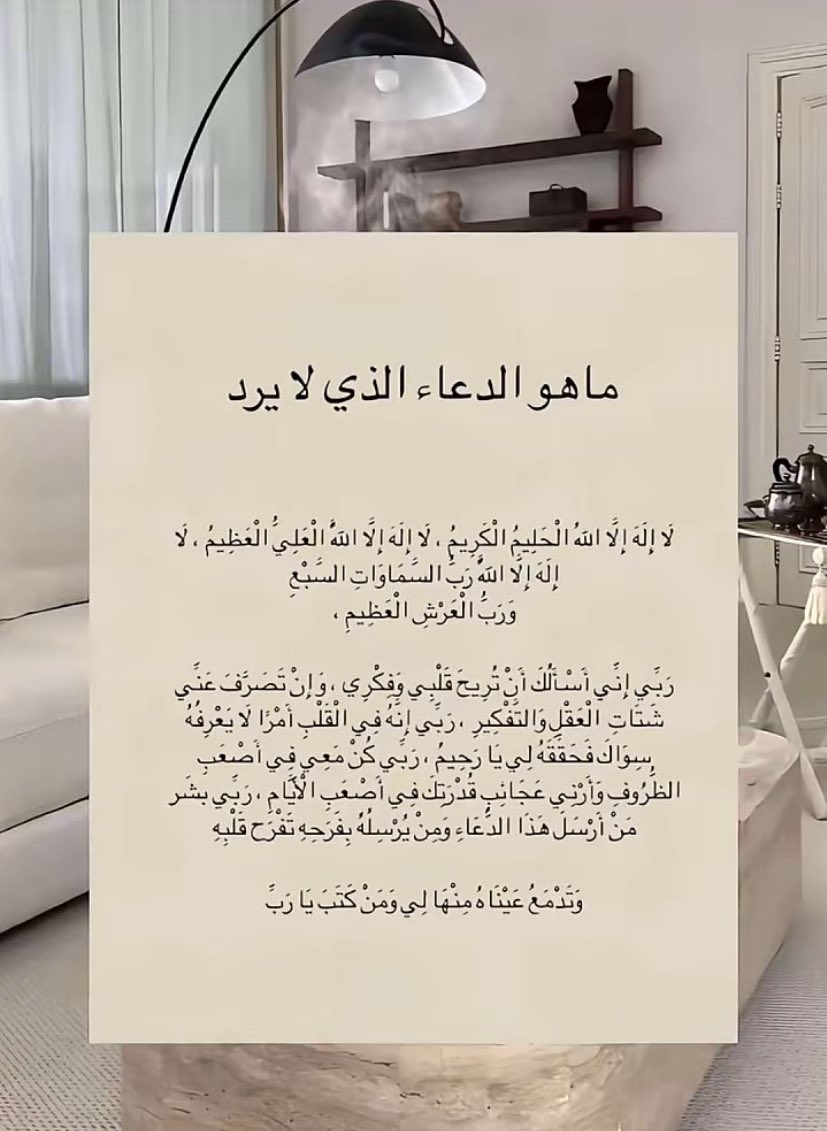 ماهو الدعاء الذي لا يرد
لَا إِلَهَ إِلَّا اللهُ الْحَلِيمُ الْكَرِيمُ ، لَا إِلَهَ إِلَّا اللهُ الْعَلِيُّ الْعَظِيمُ ، لَا
إِلَهَ إِلَّا اللهُ رَبُّ السَّمَاوَاتِ السَّبْعِ
وَرَبُّ الْعَرْشِ الْعَظِيمِ ،
رَبِّي إِنِّي أَسْأَلُكَ أَنْ تُرِيحَ قَلْبِي وَفِكْرِي ، وَإِنْ تَصَرَّفَ عَنِّي
شَتَاتِ الْعَقْلِ وَالتَّفْكِيرِ ، رَبِّي إِنَّهُ فِي الْقَلْبِ أَمْرًا لَا يَعْرِفُهُ
سِوَاكَ فَحَقِّقَهُ لِي يَا رَحِيمُ ، رَبِّي كُنْ مَعِي فِي أَصْعَبِ
الظُّرُوفِ وَأَرْنِي عَجَائِبِ قُدْرَتِكَ فِي أَصْعَبِ الْأَيَّامِ ، رَبِّي بشَّر
مَنْ أَرْسَلَ هَذَا الدُّعَاءِ وَمِنْ يُرْسِلُهُ بِفَرَحِهِ تَفْرَح قَلْبِهِ
وَتَدْمَعُ عَيْنَاهُ مِنْهَا لِي وَمَنْ كَتَبَ يَا رَبِّ